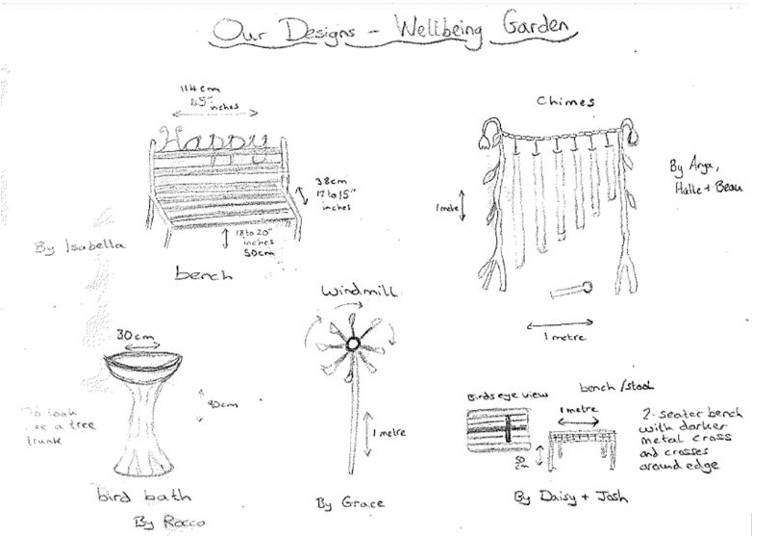 Our Designs - Wellbeing Garden
114cm
45"
inches
Happy
38cm
17 to 15"
inches
18 to 20"
inches
50cm
By Isabella
bench
Chimes
1 metre
1 metre
By Anya,
Halle + Beau
Windmill
1 metre
By Grace
30cm
80cm
To look
like a tree
trunk
bird bath
By Rocco
Birds eye view
bench/stool
1 metre
50
cm
2-seater bench
with darker
metal cross
and crosses
around edge
By Daisy + Josh